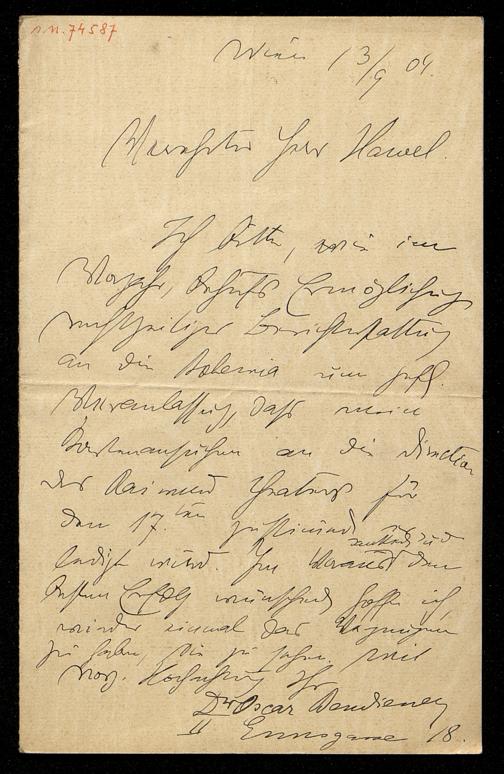 I.N. 74587
Wien 13/9 04.
Verehrter Herr Hawel.
Ich bitte, wie im
Vorjahr, behufs Ermöglichung
rechtzeitiger Berichterstattung
an die Bohemia um gefl.
Veranlassung, daß mein
Kartenansuchen an die Direction
des Raimund Theaters für
den 17. ten zustimmend
erledigt wird. Im Voraus den
besten Erfolg wünschend hoffe ich,
wieder einmal das Vergnügen
zu haben, Sie zu sehen, mit
vorz. Hochachtung Ihr
Dr Oscar Bendiener
II Ennsgasse 18.